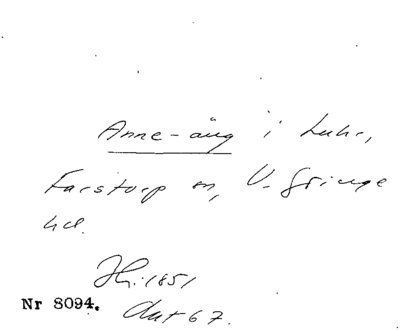 Anne-äng i Luhr,
Farstorp sn, V. Göinge
hd.
Hi: 1851
Nr 8094. Aut 67.